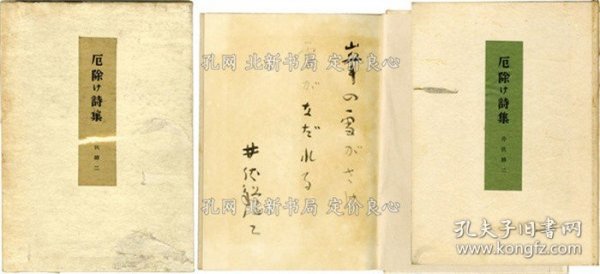 厄除け詩集
井伏鱒二
峯の雪がさけ
雪がなだれる
井伏鱒二
厄除け詩集
井伏鱒二
孔网 北新书局 定价良心
孔网 北新书局 定价良心
孔夫子旧书网
www.kongfz.com